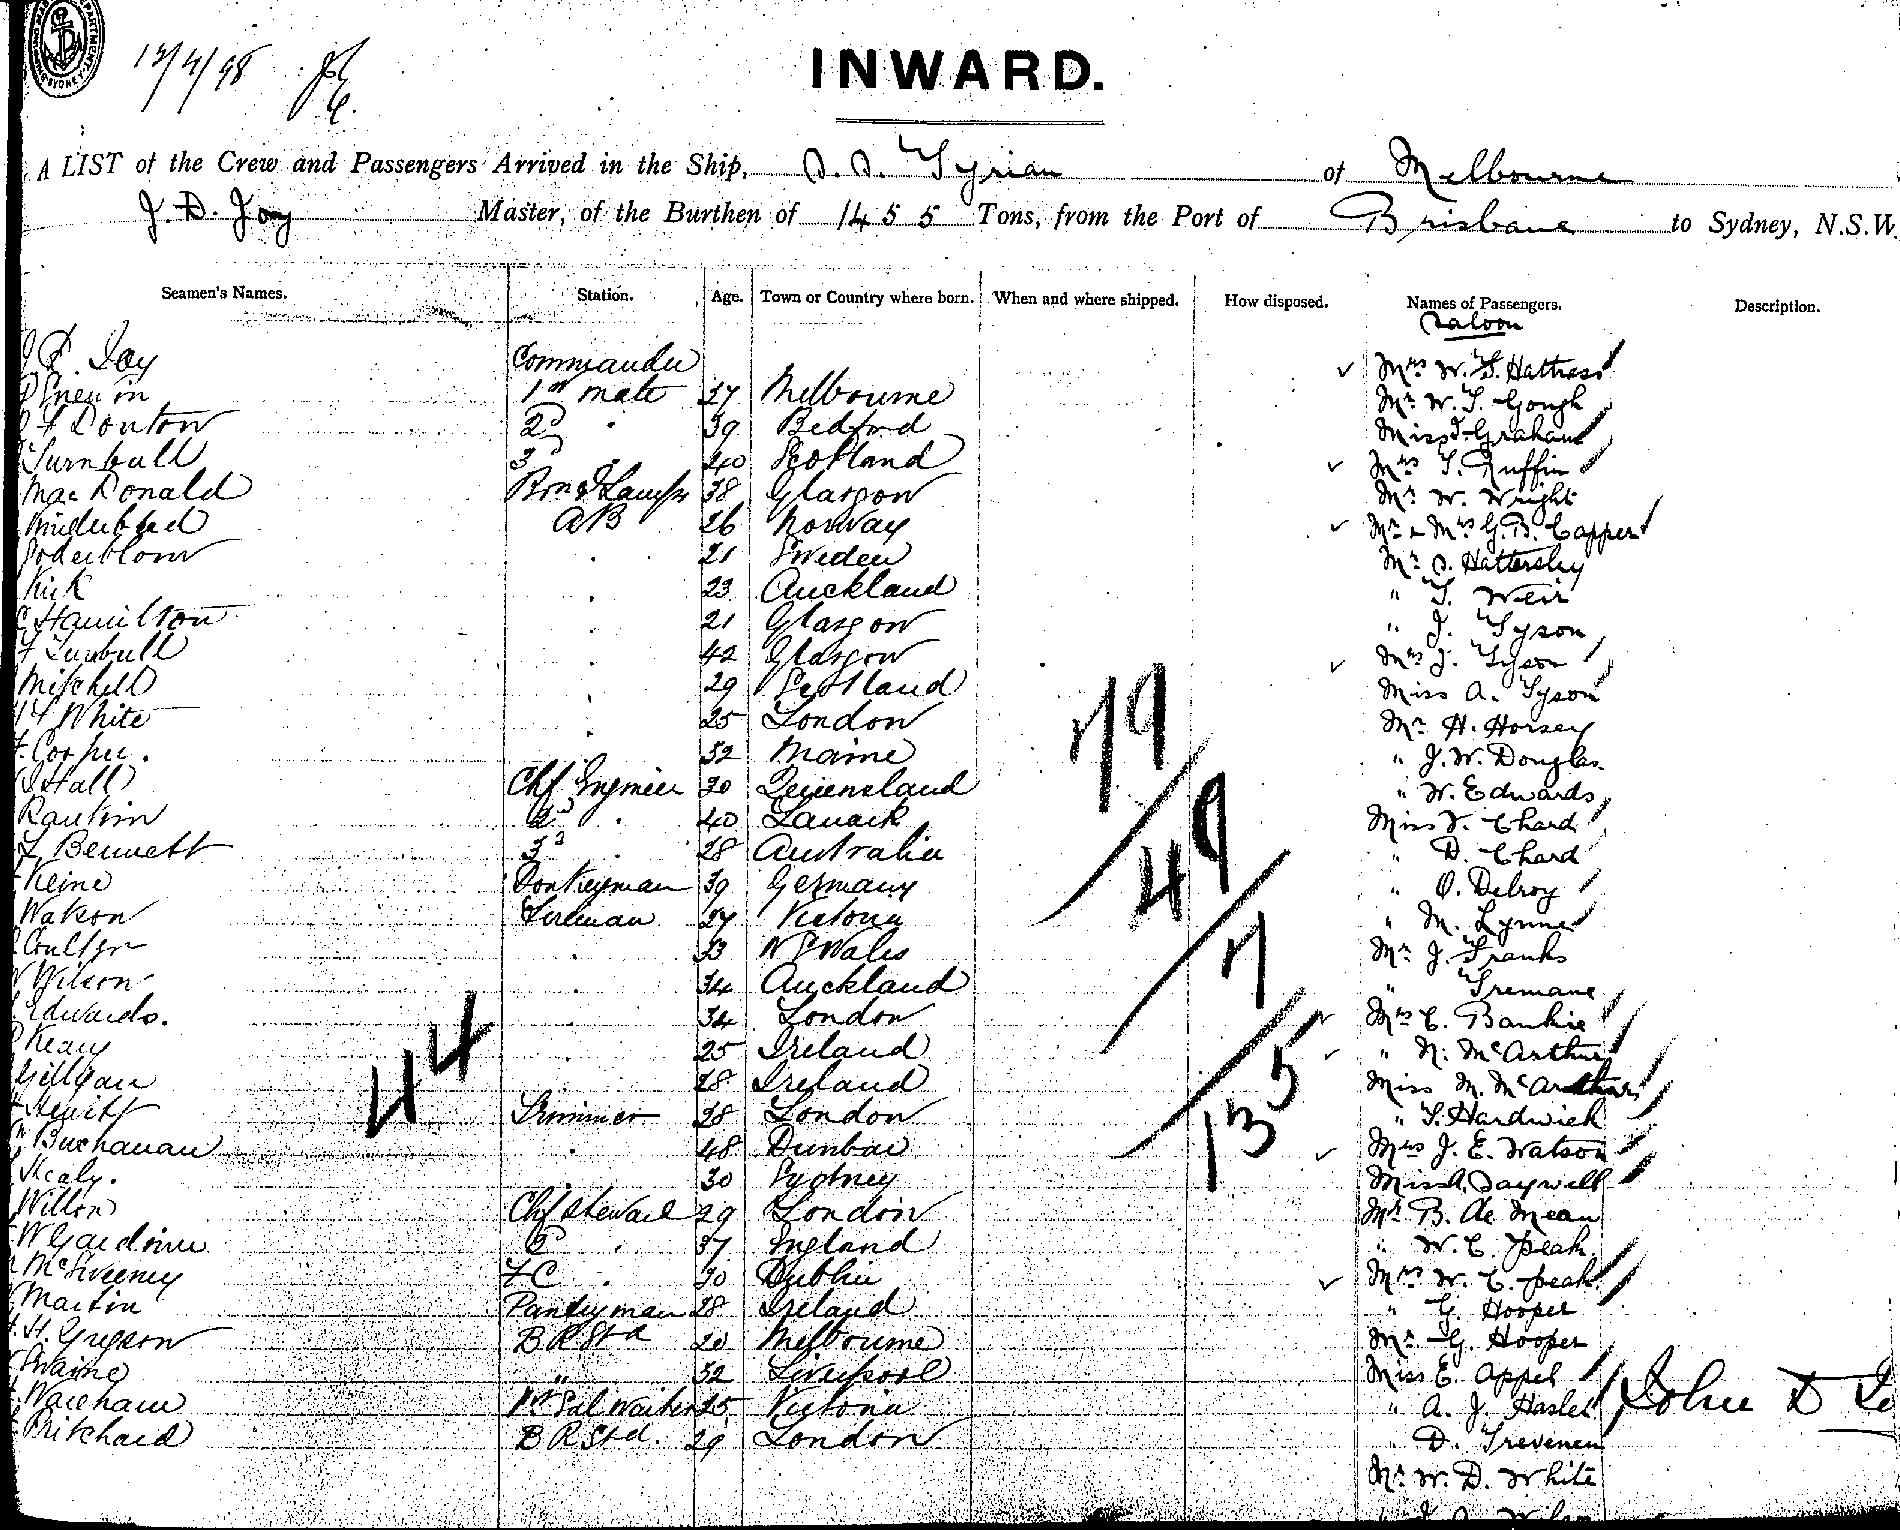 12/4/98
INWARD.
A LIST of the Crew and Passengers Arrived in the Ship, S.S. Tyrian of Melbourne
J. D. Joy Master, of the Burthen of 1455 Tons, from the Port of Brisbane to Sydney, N.S.W.
Seamen's Names. Station. Age. Town or Country where born. When and where shipped. How disposed. Names of Passengers. Description.
Saloon
Joy Commander Mrs W. T. Hattress
1st mate 37 Melbourne Mr W. T. Gough
Donton 2d " 39 Bedford Miss Graham
Turnbull 3d " 40 Scotland Mrs T. Ruffin
MacDonald Bsn & Lamps 38 Glasgow Mr W. Wright
AB 26 Norway Mr & Mrs G. B. Capper
Soderblom " 21 Sweden Mr S. Hattersley
Kirk " 23 Auckland " T. Weir
Hamilton " 21 Glasgow " J. Tyson
Turnbull " 42 Glasgow Mrs J. Tyson
Mitchell " 29 Scotland Miss A. Tyson
White " 25 London Mr H. Horsey
Cooper. " 52 Maine " J. W. Douglas
Hall Chf Engineer 30 Queensland " W. Edwards
Rankin 2d " 40 Lanark Miss V. Chard
Bennett 3d " 28 Australia " D. Chard
Heine Donkeyman 39 Germany " O. Delroy
Watson Fireman 27 Victoria " M. Lynne
Coulter " 33 N S Wales Mr J. Franks
Wilson " 34 Auckland " Tremane
Edwards. " 34 London Mrs C. Bankie
Keany " 25 Ireland " N. McArthur
Gilligan " 28 Ireland Miss M. McArthur
Hewitt Trimmer 28 London " T. Hardwick
Buchanan " 48 Dunbar Mrs J. E. Watson
Healy. 30 Sydney Miss A. Saywell
Wilton Chf Steward 29 London Mr B. de Mean
W Gardoine 2d " 37 England " W. C. Peak
McSweeney F C " 30 Dublin Mrs W. C. Peak
Martin Pantryman 28 Ireland " G. Hooper
H. Gregson B R Std 20 Melbourne Mr G. Hooper
Maine " 32 Liverpool Miss E. Appel
Wareham Nt Sal Waiter 25 Victoria " A. J. Hasler John D Jo
Pritchard B R Std. 29 London " D. Trevenen
Mr W. D. White
44
79
49
7
135